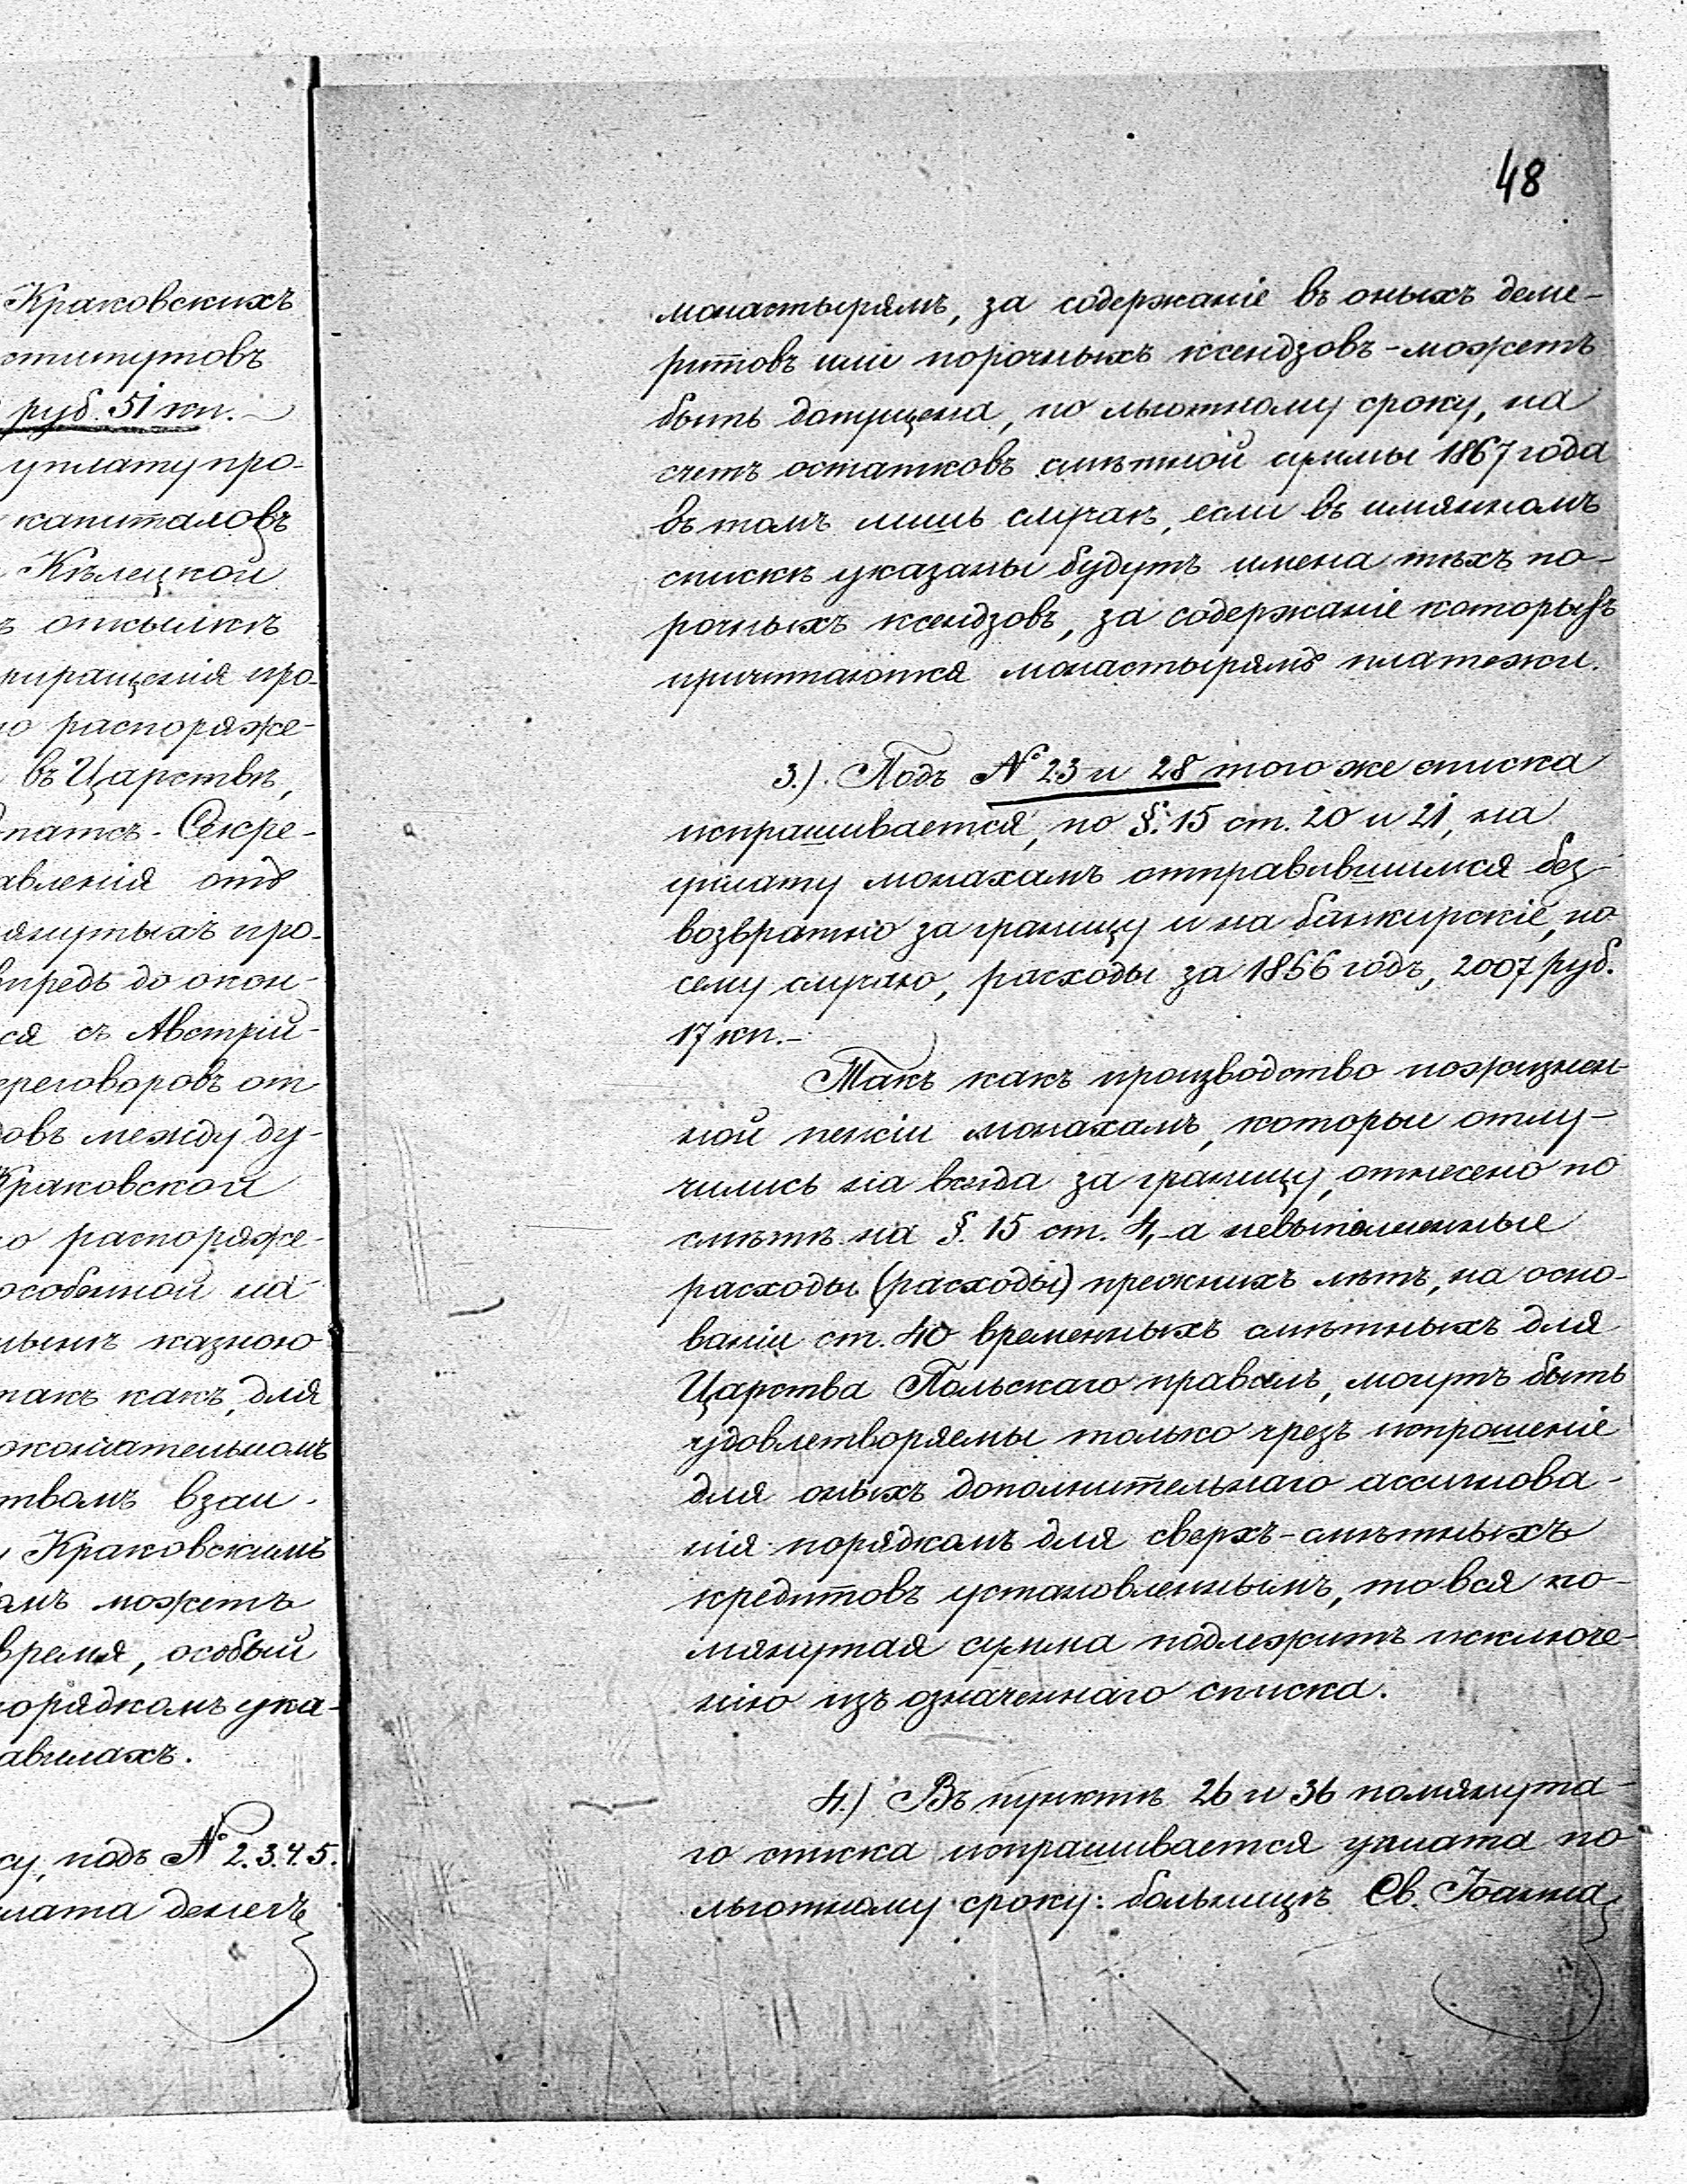 Краковскихъ
ститутовъ
руб. 51 кп.
уплату про-
капиталовъ
Кѣлецкой
отсылкѣ
приращенія про-
распоряже-
въ Царствѣ,
Секре-
авленія отъ
янутыхъ про-
впредь до окон-
ся съ Австрій-
ереговоровъ от
овъ между ду-
Краковской
о распоряже-
особенной на-
казною
такъ какъ, для
окончательномъ
твомъ взаи-
Краковскимъ
амъ можетъ
время, особый
порядкомъ ука-
авилахъ.
су, подъ № 2.3.4.5.
лата денегъ
48
монастырямъ, за содержаніе въ оныхъ деме-
ритовъ или порочныхъ ксендзовъ - можетъ
быть допущена, по льготному сроку, на
счетъ остатковъ смѣтной суммы 1867 года
въ томъ лишь случаѣ, если въ имянномъ
спискѣ указаны будутъ имена тѣхъ по-
рочныхъ ксендзовъ, за содержаніе которыхъ
причитаются монастырямъ платежи.
3.) Подъ № 23 и 28 того же списка
испрашивается, по §. 15 ст. 20 и 21, на
уплату монахамъ отправившимся без-
возвратно за границу и на банкирскіе, по
сему случаю, расходы за 1866 годъ, 2007 руб.
17 кп.-
Такъ какъ производство пожизнен-
ной пенсіи монахамъ, которые отлу-
чились на всегда за границу, отнесено по
смѣтѣ на §. 15 ст. 4,- а невыполненные
расходы (расходы) прежнихъ лѣтъ, на осно-
ваніи ст. 40 временныхъ смѣтныхъ для
Царства Польскаго правилъ, могутъ быть
удовлетворяемы только чрезъ испрошеніе
для оныхъ дополнительнаго ассигнова-
нія порядкомъ для сверхъ-смѣтныхъ
кредитовъ установленнымъ, то вся по-
мянутая сумма подлежитъ исключе-
нію изъ означеннаго списка.
4.) Въ пунктѣ 26 и 36 помянута-
го списка испрашивается уплата по
льготному сроку: больницѣ Св. Іоанна